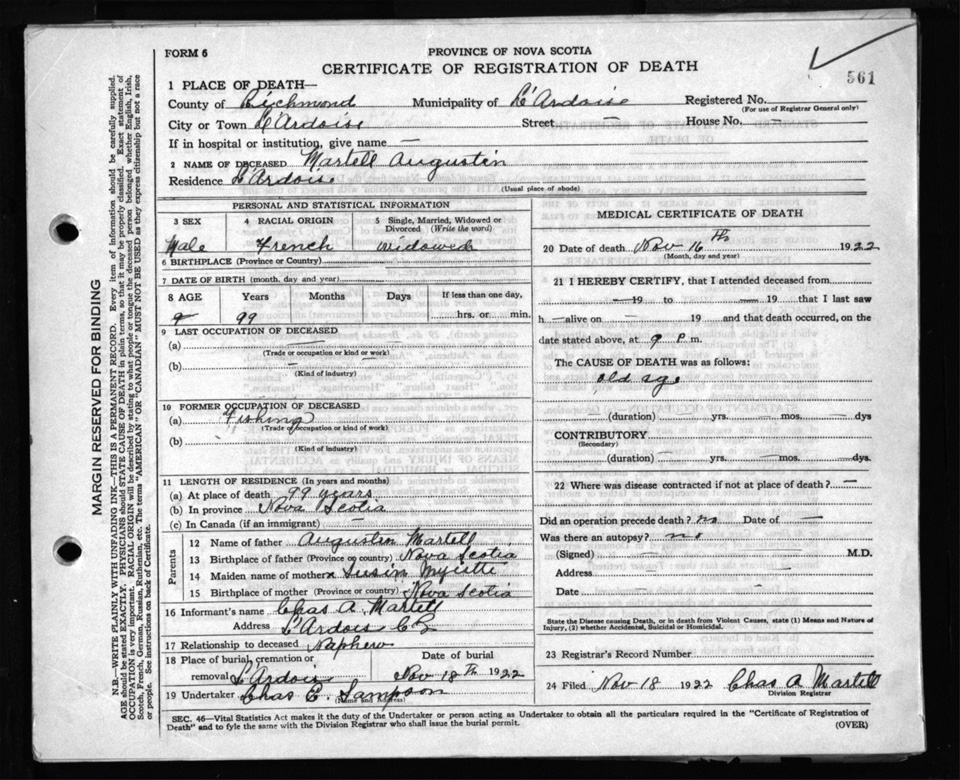 FORM 6
PROVINCE OF NOVA SCOTIA
CERTIFICATE OF REGISTRATION OF DEATH
561
1 PLACE OF DEATH—
County of Richmond Municipality of L'Ardoise Registered No.
(For use of Registrar General only)
City or Town L'Ardoise Street — House No. —
If in hospital or institution, give name —
2 NAME OF DECEASED Martell Augustin
Residence L'Ardoise
(Usual place of abode)
PERSONAL AND STATISTICAL INFORMATION
3 SEX 4 RACIAL ORIGIN 5 Single, Married, Widowed or Divorced (Write the word)
Male French Widowed
6 BIRTHPLACE (Province or Country)
7 DATE OF BIRTH (month, day and year)
8 AGE Years Months Days If less than one day,
99 hrs. or min.
9 LAST OCCUPATION OF DECEASED
(a) —
(Trade or occupation or kind or work)
(b) —
(Kind of industry)
10 FORMER OCCUPATION OF DECEASED
(a) Fishing
(Trade or occupation or kind of work)
(b)
(Kind of industry)
11 LENGTH OF RESIDENCE (In months and years)
(a) At place of death 99 years
(b) In province Nova Scotia
(c) In Canada (if an immigrant) —
Parents
12 Name of father Augustin Martell
13 Birthplace of father (Province or country) Nova Scotia
14 Maiden name of mother
15 Birthplace of mother (Province or country) Nova Scotia
16 Informant's name Chas A. Martell
Address L'Ardois C B
17 Relationship to deceased Naphew
18 Place of burial, cremation or removal L'Ardois Date of burial Nov 18 th 1922
19 Undertaker Chas E. Sampson
(Name and Address)
MEDICAL CERTIFICATE OF DEATH
20 Date of death Nov 16 th 1922
(Month, day and year)
21 I HEREBY CERTIFY, that I attended deceased from
— 19 to — 19 that I last saw
h — alive on — 19 and that death occurred, on the
date stated above, at 9 P. m.
The CAUSE OF DEATH was as follows:
old age
(duration) — yrs. — mos. — dys
CONTRIBUTORY
(Secondary)
(duration) — yrs. — mos. — dys
22 Where was disease contracted if not at place of death? —
Did an operation precede death? no Date of —
Was there an autopsy? no
(Signed) — M.D.
Address —
Date —
State the Disease causing Death, or in death from Violent Causes, state (1) Means and Nature of
Injury, (2) whether Accidental, Suicidal or Homicidal.
23 Registrar's Record Number
24 Filed Nov 18 1922 Chas A Martell
Division Registrar
SEC. 46—Vital Statistics Act makes it the duty of the Undertaker or person acting as Undertaker to obtain all the particulars required in the "Certificate of Registration of
Death" and to fyle the same with the Division Registrar who shall issue the burial permit.
(OVER)
MARGIN RESERVED FOR BINDING
N.B.—WRITE PLAINLY WITH UNFADING INK—THIS IS A PERMANENT RECORD. Every item of Information should be carefully supplied.
AGE should be stated EXACTLY. PHYSICIANS should STATE CAUSE OF DEATH in plain terms, so that it may be properly classified. Exact statement of
OCCUPATION is very important. RACIAL ORIGIN will be described by stating to what people or tongue the deceased person belonged whether English, Irish,
Scotch, French, German, Russian, Ruthenian, etc. The terms "AMERICAN" OR "CANADIAN" MUST NOT BE USED as they express citizenship but not a race
or people. See instructions on back of Certificate.